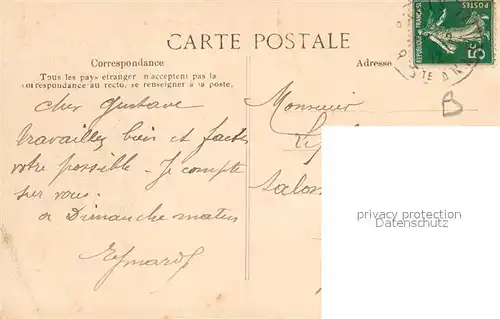 CARTE POSTALE
Correspondance
Tous les pays etranger n'acceptent pas la
correspondance au recto, se renseigner à la poste.
Adresse
POSTES
5c
REPUBLIQUE FRANÇAISE
B
Cher Gustave
travaillez bien et faites
votre possible. Je compte
sur vous.
a Dimanche matin
Monsieur
Salon
privacy protection
watermark